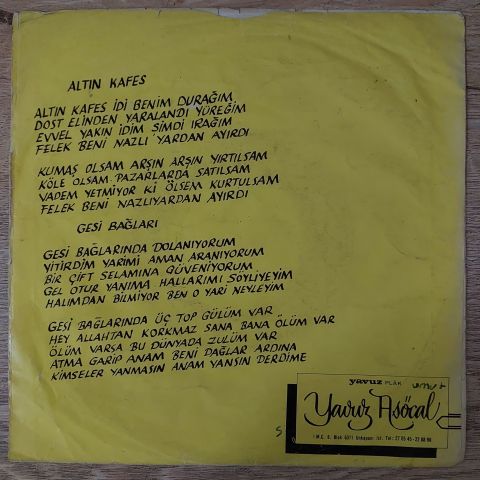 ALTIN KAFES
ALTIN KAFES İDİ BENİM DURAĞIM
DOST ELİNDEN YARALANDI YÜREĞİM
EVVEL YAKIN İDİM ŞİMDİ IRAĞIM
FELEK BENİ NAZLI YARDAN AYIRDI
KUMAŞ OLSAM ARŞIN ARŞIN YIRTILSAM
KÖLE OLSAM PAZARLARDA SATILSAM
VADEM YETMİYOR Kİ ÖLSEM KURTULSAM
FELEK BENİ NAZLIYARDAN AYIRDI
GESİ BAĞLARI
GESİ BAĞLARINDA DOLANIYORUM
YİTİRDİM YARİMİ AMAN ARANIYORUM
BİR ÇİFT SELAMINA GÜVENİYORUM
GEL OTUR YANIMA HALLARIMI SÖYLİYEYİM
HALIMDAN BİLMİYOR BEN O YARİ NEYLEYİM
GESİ BAĞLARINDA ÜÇ TOP GÜLÜM VAR
HEY ALLAHTAN KORKMAZ SANA BANA ÖLÜM VAR
ÖLÜM VARSA BU DÜNYADA ZULÜM VAR
ATMA GARİP ANAM BENİ DAĞLAR ARDINA
KİMSELER YANMASIN ANAM YANSIN DERDİME
yavuz PLÂK
Yavuz Asöcal
İ.M.Ç. 6. Blok 6371 Unkapanı İst. Tel: 27 65 45 - 22 88 98